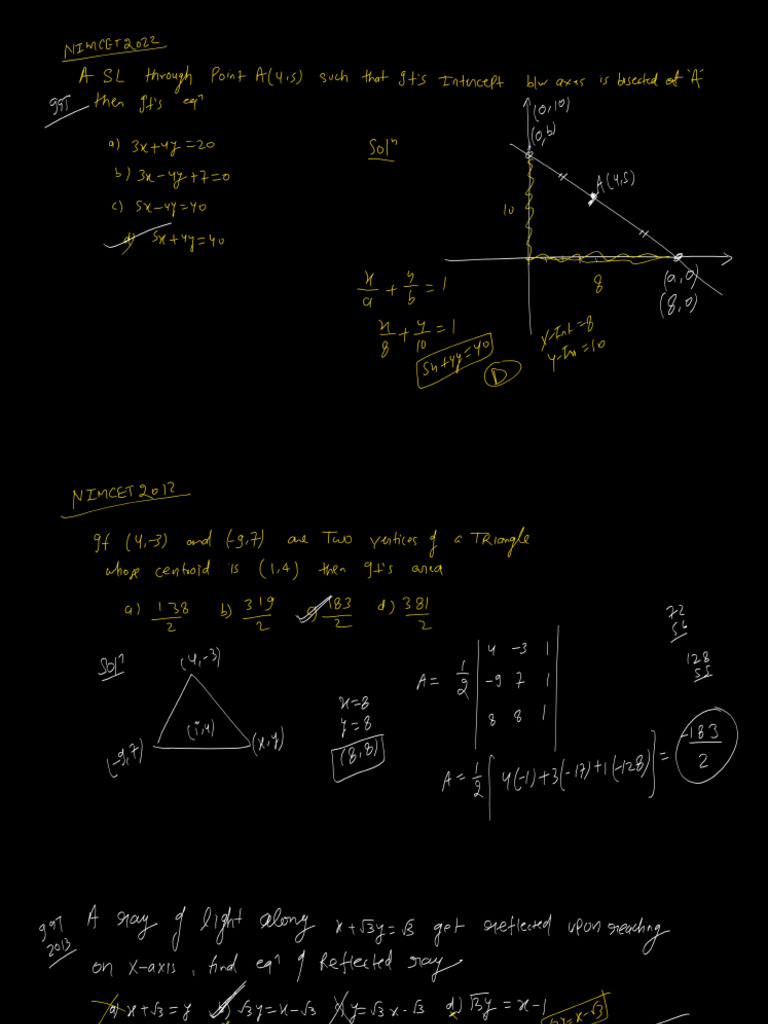 NIMCET2022
A SL through Point A(4,5) such that It's Intercept b/w axes is bisected at 'A'
then It's eqn
a) 3x+4y=20
b) 3x-4y+7=0
c) 5x-4y=40
d) 5x+4y=40
Soln
(0,10)
(0,b)
A(4,5)
10
8
(a,0)
(8,0)
x/a + y/b = 1
x/8 + y/10 = 1
5x+4y=40
D
x-Int=8
y-In=10
NIMCET2012
If (4,-3) and (-9,7) are Two vertices of a TRiangle
whose centroid is (1,4) then It's area
a) 138/2 b) 319/2 c) 183/2 d) 381/2
Soln
(4,-3)
(1,4)
(-9,7)
(x,y)
x=8
y=8
(8,8)
A = 1/2 | 4 -3 1
-9 7 1
8 8 1 |
72
56
128
55
A = 1/2 [4(-1)+3(-17)+1(-128)] = -183/2
2013
A ray of light along x+√3y=√3 get reflected upon reaching
on X-axis, find eqn of Reflected ray.
a) x+√3=y b) √3y=x-√3 c) y=√3x-√3 d) √3y=x-1
√3y=x-√3